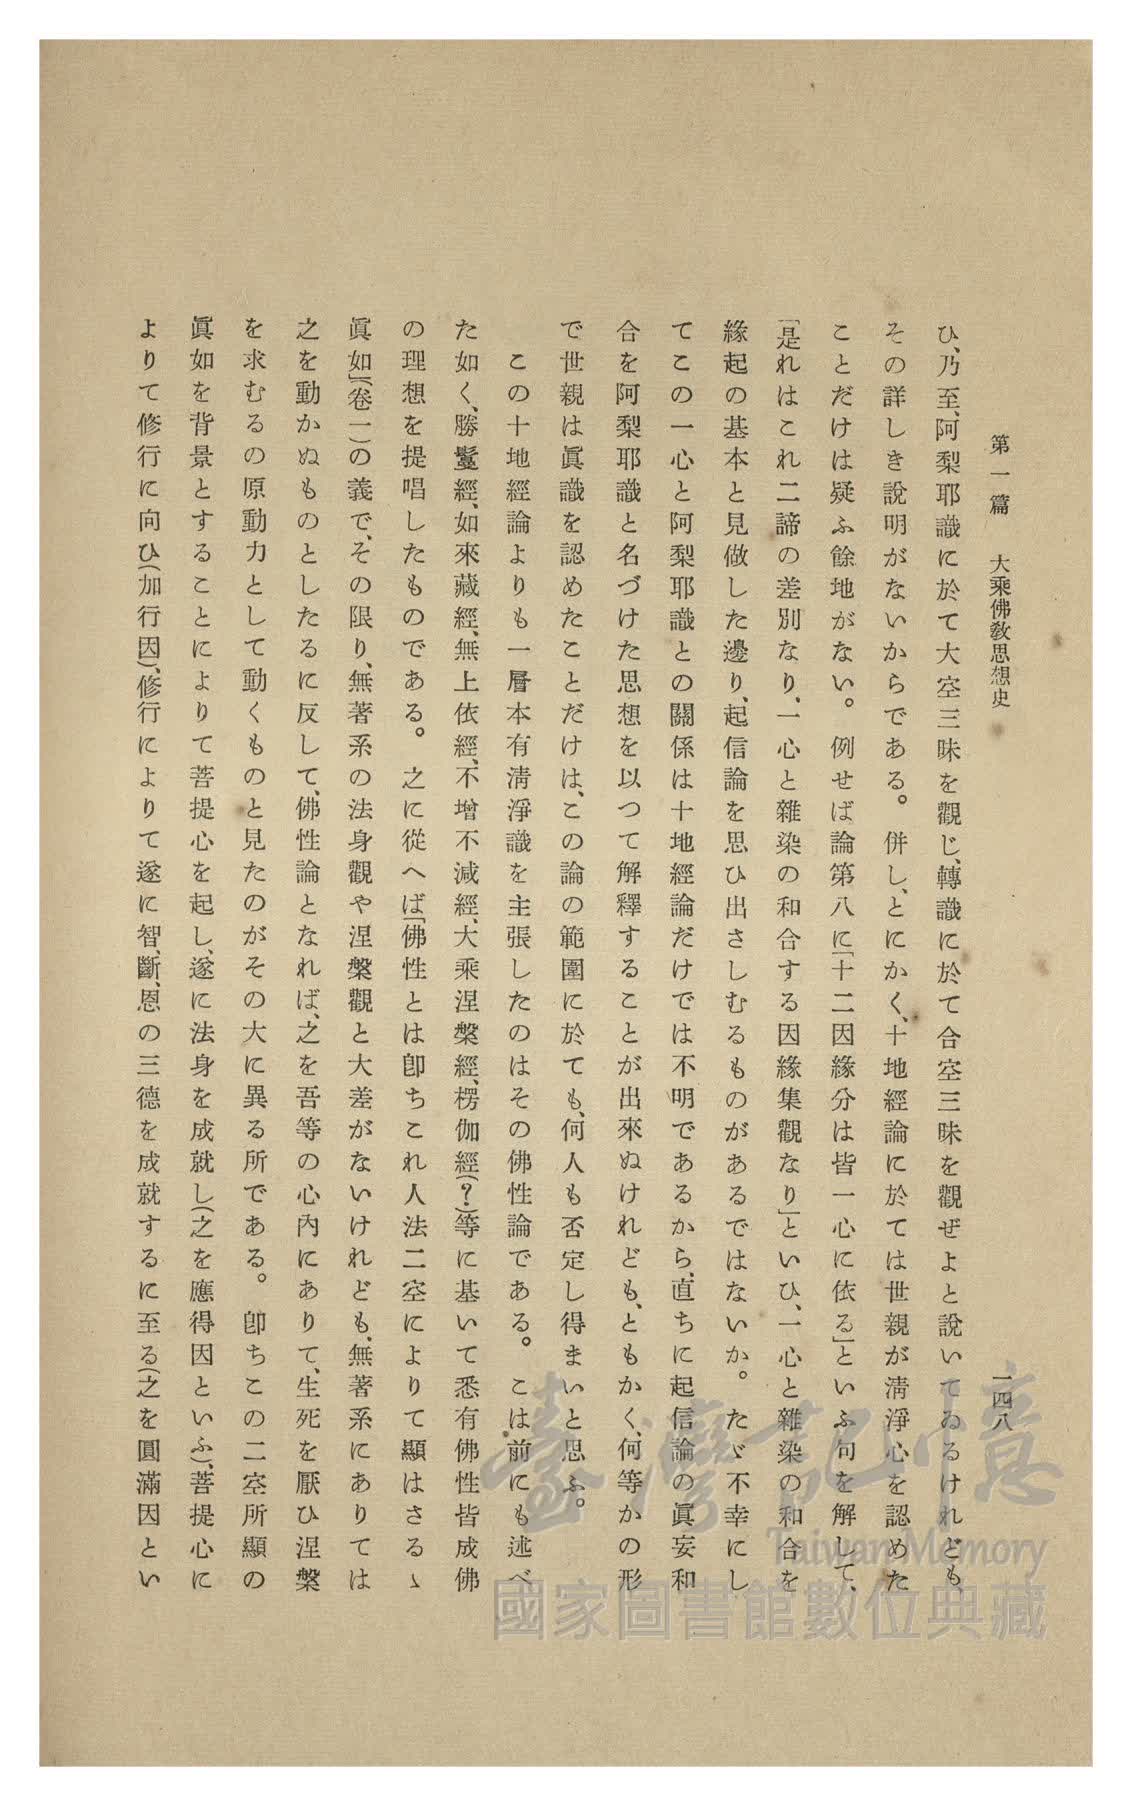 第一篇　大乘佛教思想史
一四八
ひ、乃至、阿梨耶識に於て大空三昧を觀じ、轉識に於て合空三昧を觀ぜよと說いてゐるけれども、
その詳しき說明がないからである。併し、とにかく、十地經論に於ては世親が清淨心を認めた
ことだけは疑ふ餘地がない。例せば論第八に「十二因緣分は皆一心に依る」といふ句を解して、
「是れはこれ二諦の差別なり、一心と雜染の和合する因緣集觀なり」といひ、一心と雜染の和合を
緣起の基本と見做した邊り、起信論を思ひ出さしむるものがあるではないか。たゞ不幸にし
てこの一心と阿梨耶識との關係は十地經論だけでは不明であるから、直ちに起信論の眞妄和
合を阿梨耶識と名づけた思想を以つて解釋することが出來ぬけれども、ともかく、何等かの形
で世親は眞識を認めたことだけは、この論の範圍に於ても、何人も否定し得まいと思ふ。
この十地經論よりも一層本有清淨識を主張したのはその佛性論である。こは前にも述べ
た如く、勝鬘經、如來藏經、無上依經、不增不減經、大乘涅槃經、楞伽經(?)等に基いて悉有佛性皆成佛
の理想を提唱したものである。之に從へば「佛性とは卽ちこれ人法二空によりて顯はさるゝ
眞如」(卷一)の義で、その限り、無著系の法身觀や涅槃觀と大差がないけれども、無著系にありては
之を動かぬものとしたるに反して、佛性論となれば、之を吾等の心內にありて、生死を厭ひ涅槃
を求むるの原動力として動くものと見たのがその大に異る所である。卽ちこの二空所顯の
眞如を背景とすることによりて菩提心を起し、遂に法身を成就し(之を應得因といふ)、菩提心に
よりて修行に向ひ(加行因)、修行によりて遂に智、斷、恩の三德を成就するに至る(之を圓滿因とい
臺灣記憶
Taiwan Memory
國家圖書館數位典藏